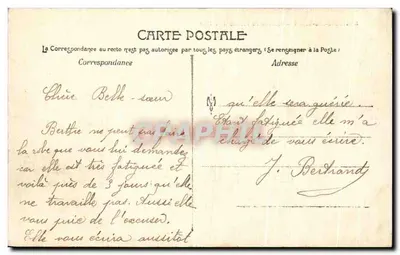 CARTE POSTALE
La Correspondance au recto n'est pas autorisée par tous les pays étrangers (Se renseigner à la Poste)
Correspondance
Adresse
Chère Belle-sœur
Berthe ne peut pas faire
la robe que vous lui demandez
car elle est très fatiguée et
voilà près de 3 jours qu'elle
ne travaille pas. Aussi elle
vous prie de l'excuser.
Elle vous écrira aussitôt
qu'elle sera guérie.
Étant fatiguée elle m'a
chargé de vous écrire.
J. Bertrand